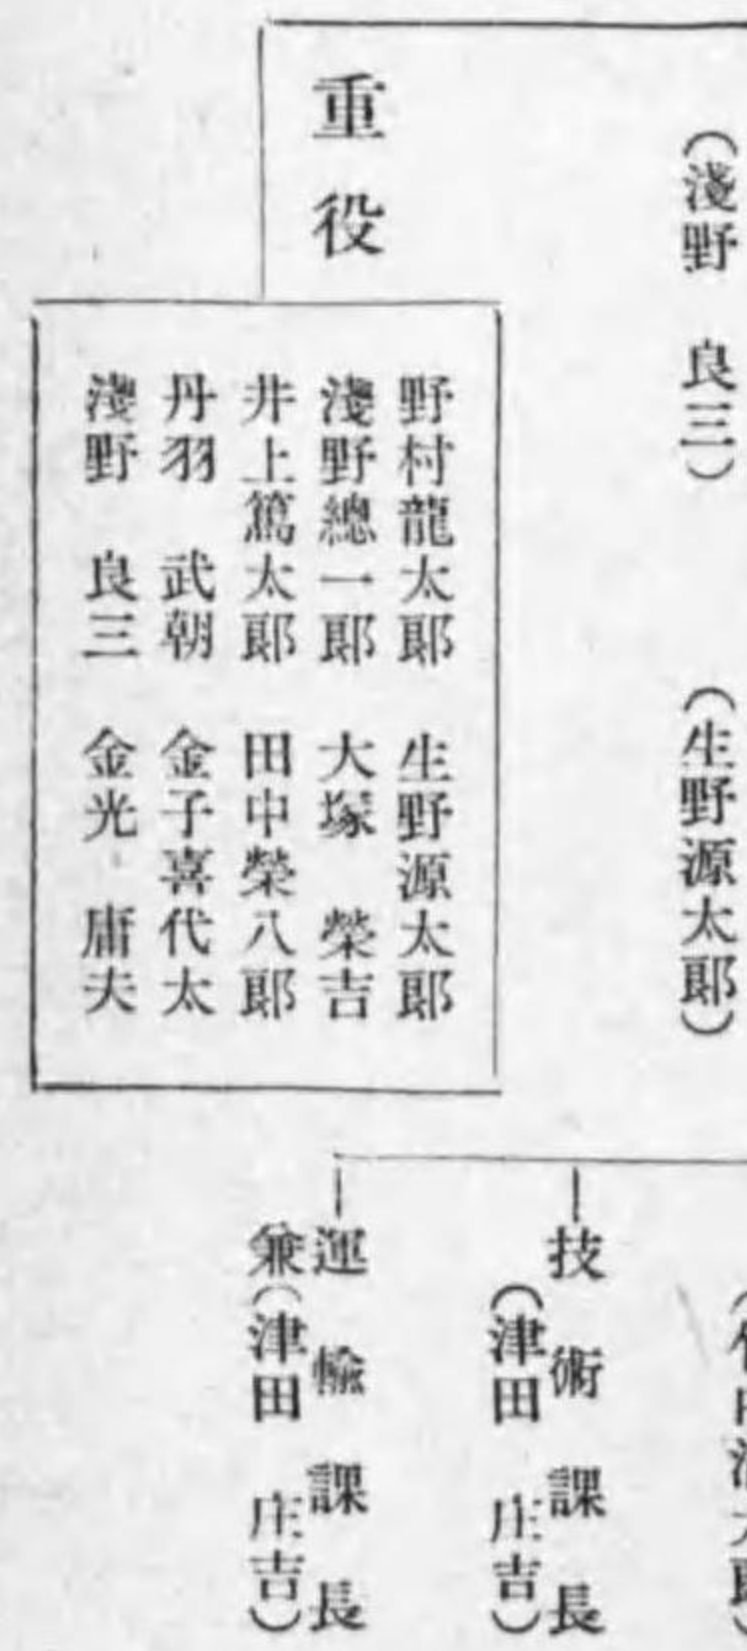 (淺野 良三)
(生野源太郎)
重役
野村龍太郎 生野源太郎
淺野總一郎 大塚 榮吉
井上篤太郎 田中榮八郎
丹羽 武朝 金子喜代太
淺野 良三 金光 庸夫
技術課長
(津田 庄吉)
運輸課長
兼(津田 庄吉)